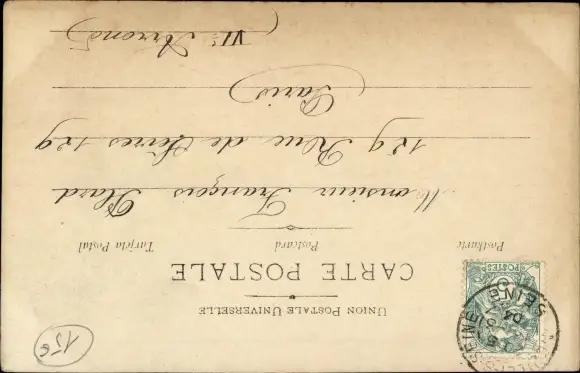 UNION POSTALE UNIVERSELLE
CARTE POSTALE
Postkarte Postcard Tarjeta Postal
Monsieur François Plard
129 Rue de Sèvres 129
Paris
VIe Arrond
POSTES
SEINE
04
15c